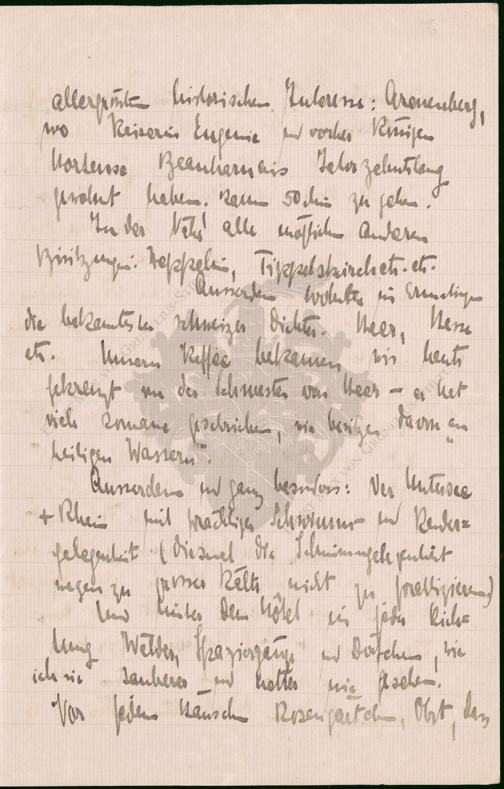 allergrössten historischen Interesse: Arenenberg,
wo Kaiserin Eugenie und vorher Königin
Hortense Beauharnais Jahrzehntelang
gewohnt haben. Kaum 50 Min zu gehen.
In der Nähe alle möglichen anderen
Besitzungen: Zeppelin, Tippelskirch etc. etc.
Ausserdem wohnten in Ermatingen
die bekanntesten schweizer Dichter. Heer, Hesse
etc. Unseren Kaffee bekamen wir heute
gekrengt von der Schwester von Heer – er hat
viele Romane geschrieben, wir besitzen davon „an
heiligen Wassern".
Ausserdem und ganz besonders: Der Untersee
+ Rhein mit prächtiger Schwimm- und Ruder=
gelegenheit (diesmal die Schwimmgelegenheit
wegen zu grosser Kälte nicht zu )
Und hinter dem Hôtel in jeder Rich=
tung Wälder, Spaziergänge und Dörfchen, wie
ich sie sauberer und netter nie gesehen.
Vor jedem Häuschen Rosengärtchen, Obst, dass